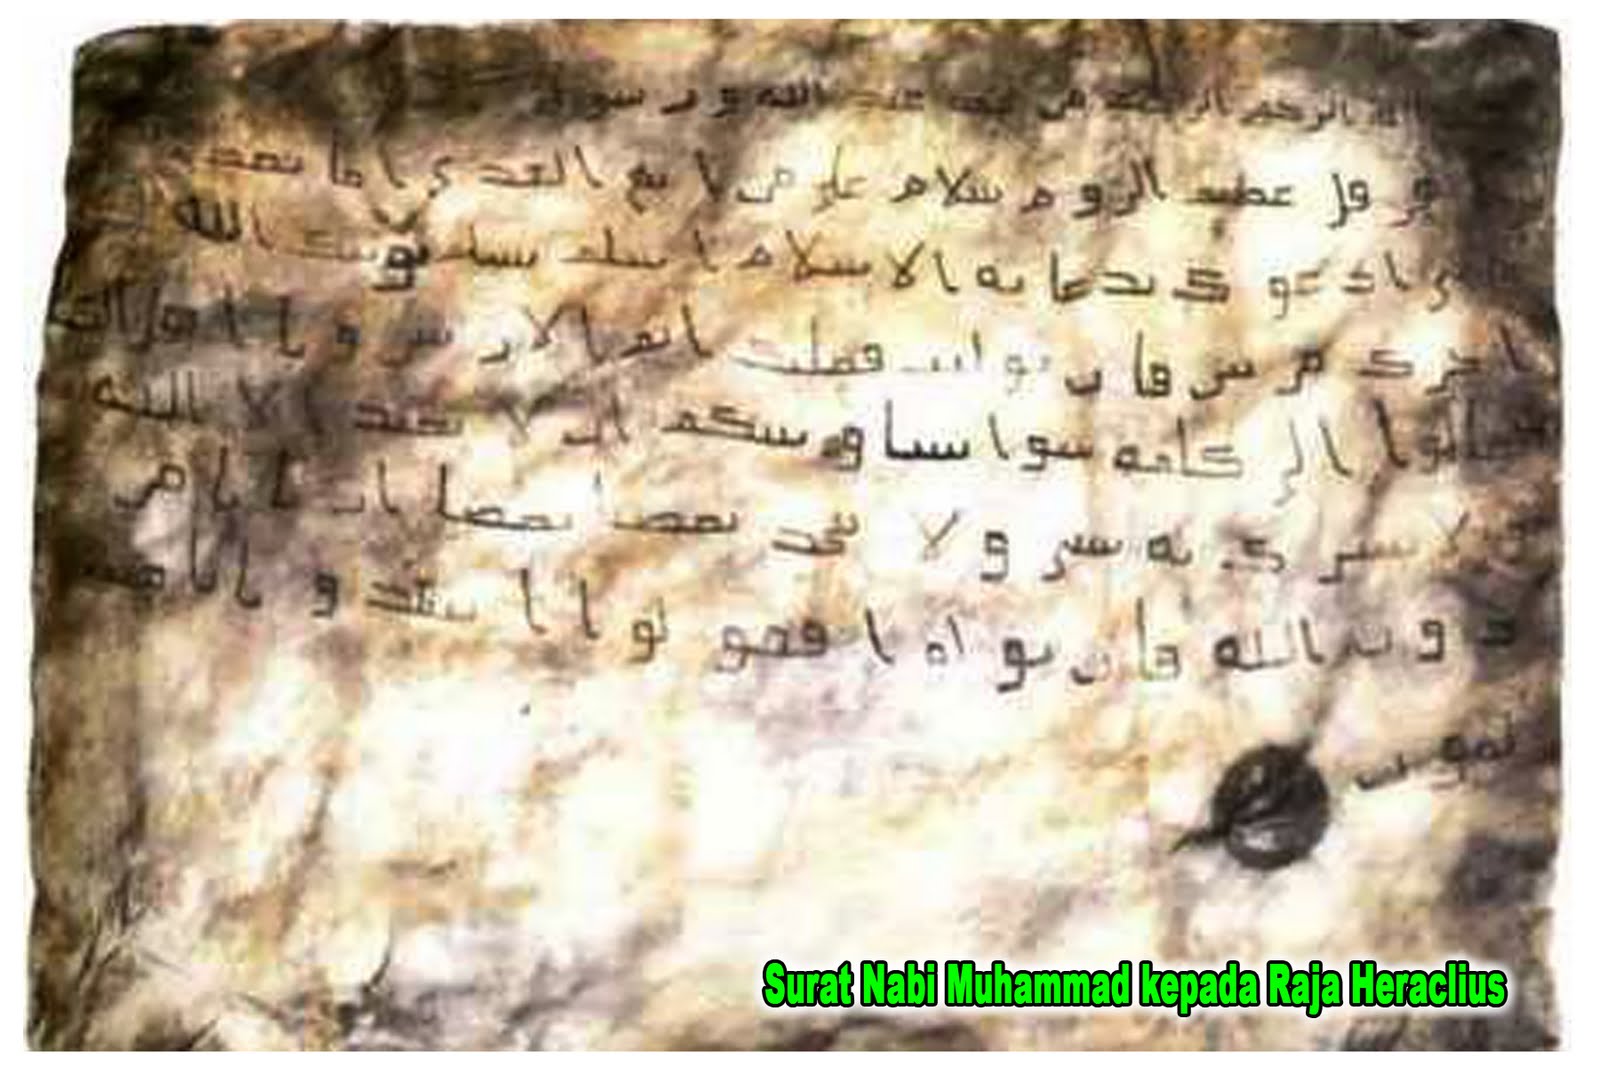 الله الرحمن الرحيم من محمد عبد الله ورسوله
هرقل عظيم الروم سلام على من اتبع الهدى اما بعد
ادعوك بدعاية الاسلام اسلم تسلم يؤتك الله
اجرك مرتين فان توليت فعليك اثم الاريسيين و يا اهل الكتاب
تعالوا الى كلمة سوا بيننا وبينكم ان لا نعبد الا الله
ولا نشرك به شي ولا يتخذ بعضنا بعضا اربابا من
دون الله فان تولوا فقولوا اشهدوا بانا
Surat Nabi Muhammad kepada Raja Heraclius